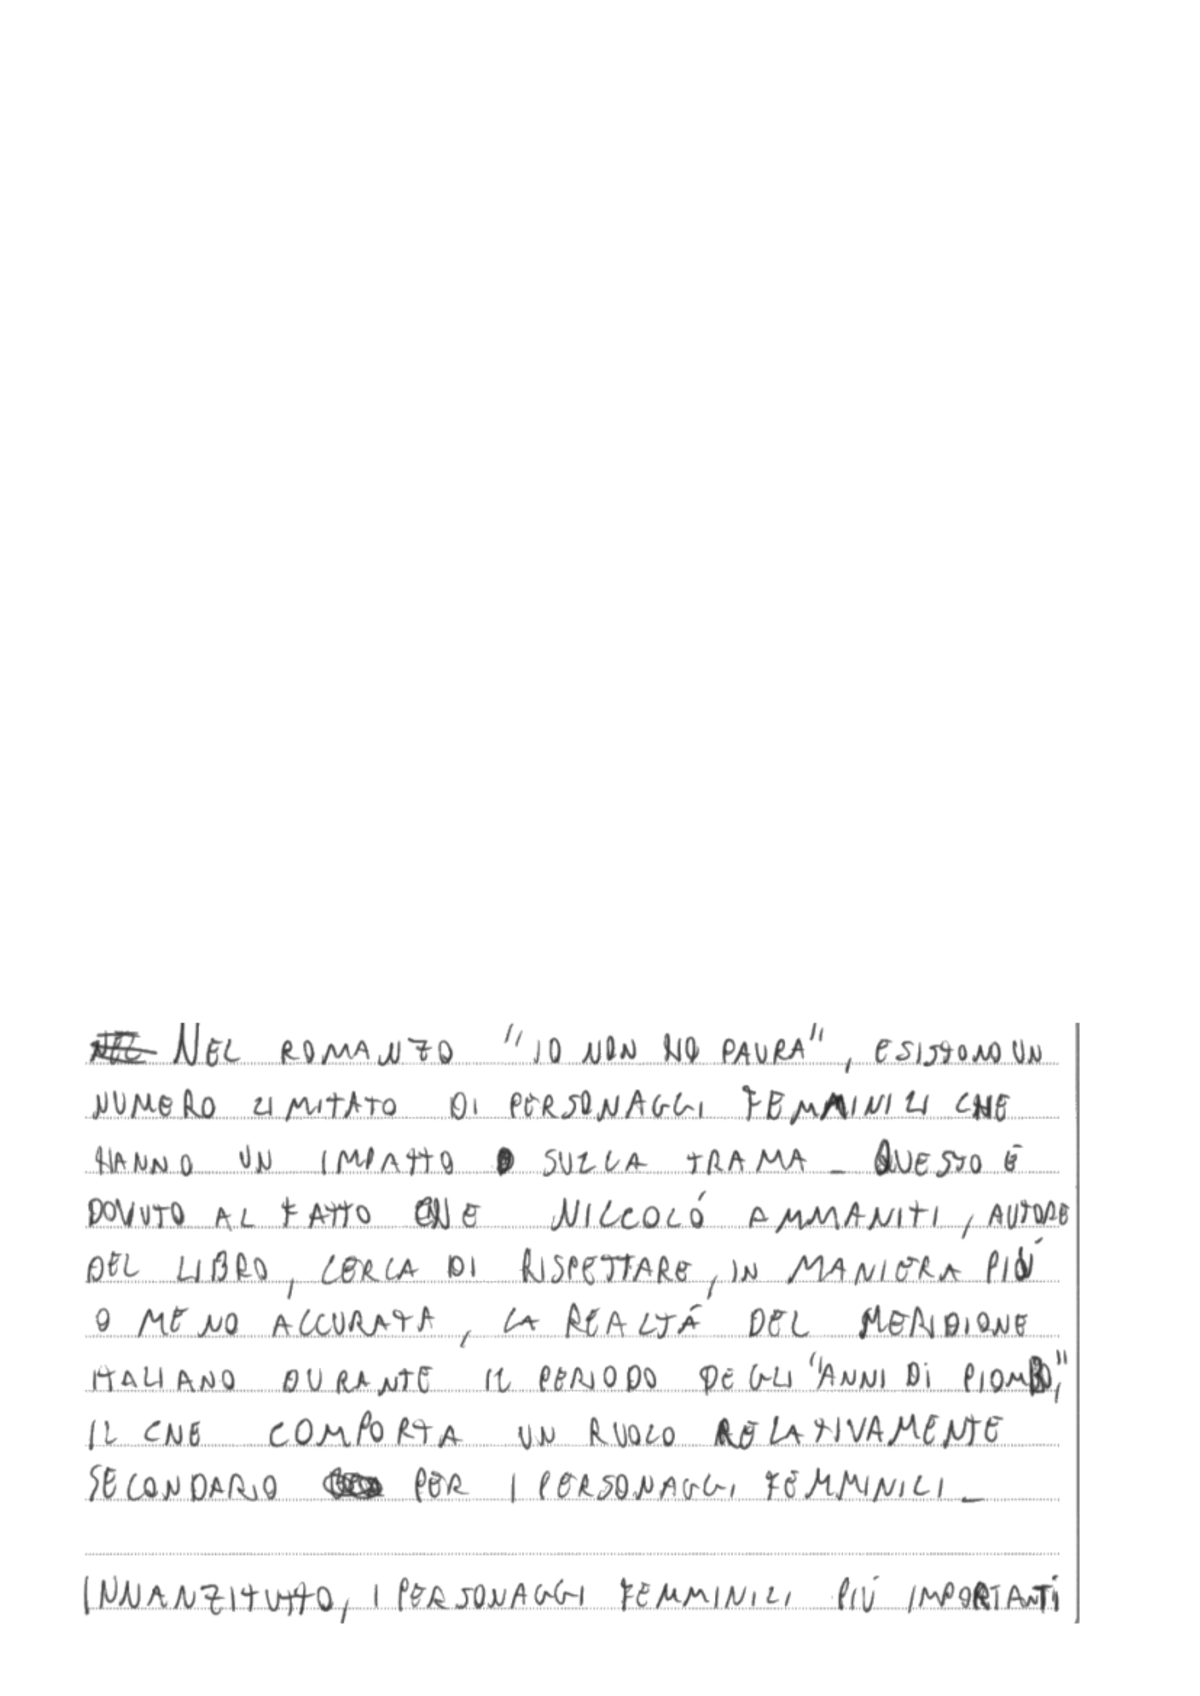 NEL ROMANZO "IO NON HO PAURA", ESISTONO UN
NUMERO LIMITATO DI PERSONAGGI FEMMINILI CHE
HANNO UN IMPATTO SULLA TRAMA. QUESTO É
DOVUTO AL FATTO CHE NILCOLÓ AMMANITI, AUTORE
DEL LIBRO, CERCA DI RISPETTARE, IN MANIERA PIÚ
O MENO ACCURATA, LA REALTÁ DEL MERIDIONE
ITALIANO DURANTE IL PERIODO DEGLI "ANNI DI PIOMBO",
IL CHE COMPORTA UN RUOLO RELATIVAMENTE
SECONDARIO PER I PERSONAGGI FEMMINILI.
INNANZITUTTO, I PERSONAGGI FEMMINILI PIÚ IMPORTANTI